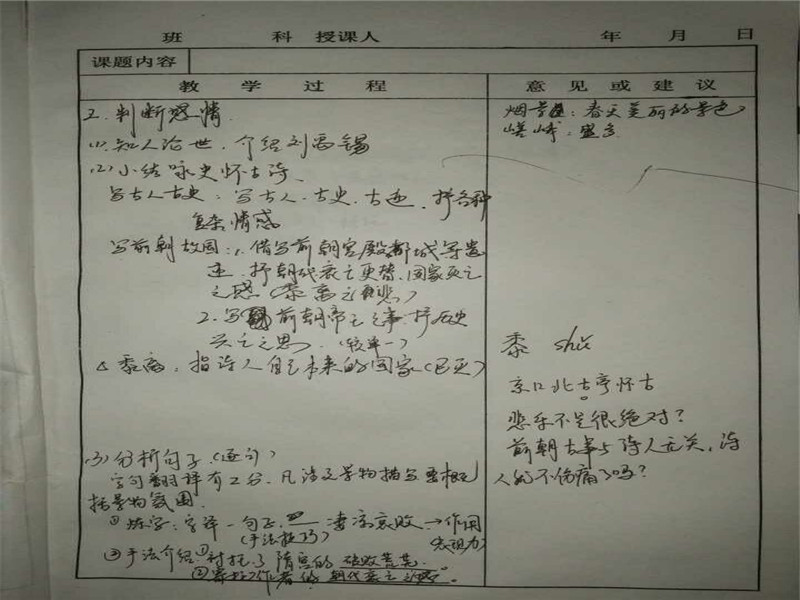 班 科 授课人 年 月 日
课题内容
教 学 过 程
意 见 或 建 议
2. 判断感情.
(1). 知人论世, 介绍刘禹锡
(2) 小结咏史怀古诗.
写古人古史: 写古人、古史、古迹. 抒各种
复杂情感
写前朝故国: 1. 借写前朝宫殿都城等遗
迹. 抒朝代衰亡更替、国家灭亡
之感 (黍离之悲)
2. 写前朝帝王之事 抒历史
兴亡之思. (较单一)
△ 黍离: 指诗人自己本来的国家 (已灭)
(3) 分析句子 (逐句)
字句翻译有2分. 凡涉及景物描写要概
括景物氛围.
① 炼字: 字译 — 句正. 凄凉衰败 → 作用
(手法技巧) 表现力
② 手法介绍 ① 衬托了隋宫的破败荒芜.
② 寄托了作者 朝代衰亡
烟景: 春天美丽的景色
嵯峨: 盛多
黍 shǔ
京口北古亭怀古
悲乐不是很绝对?
前朝古事与诗人无关, 诗
人的不伤痛了吗?